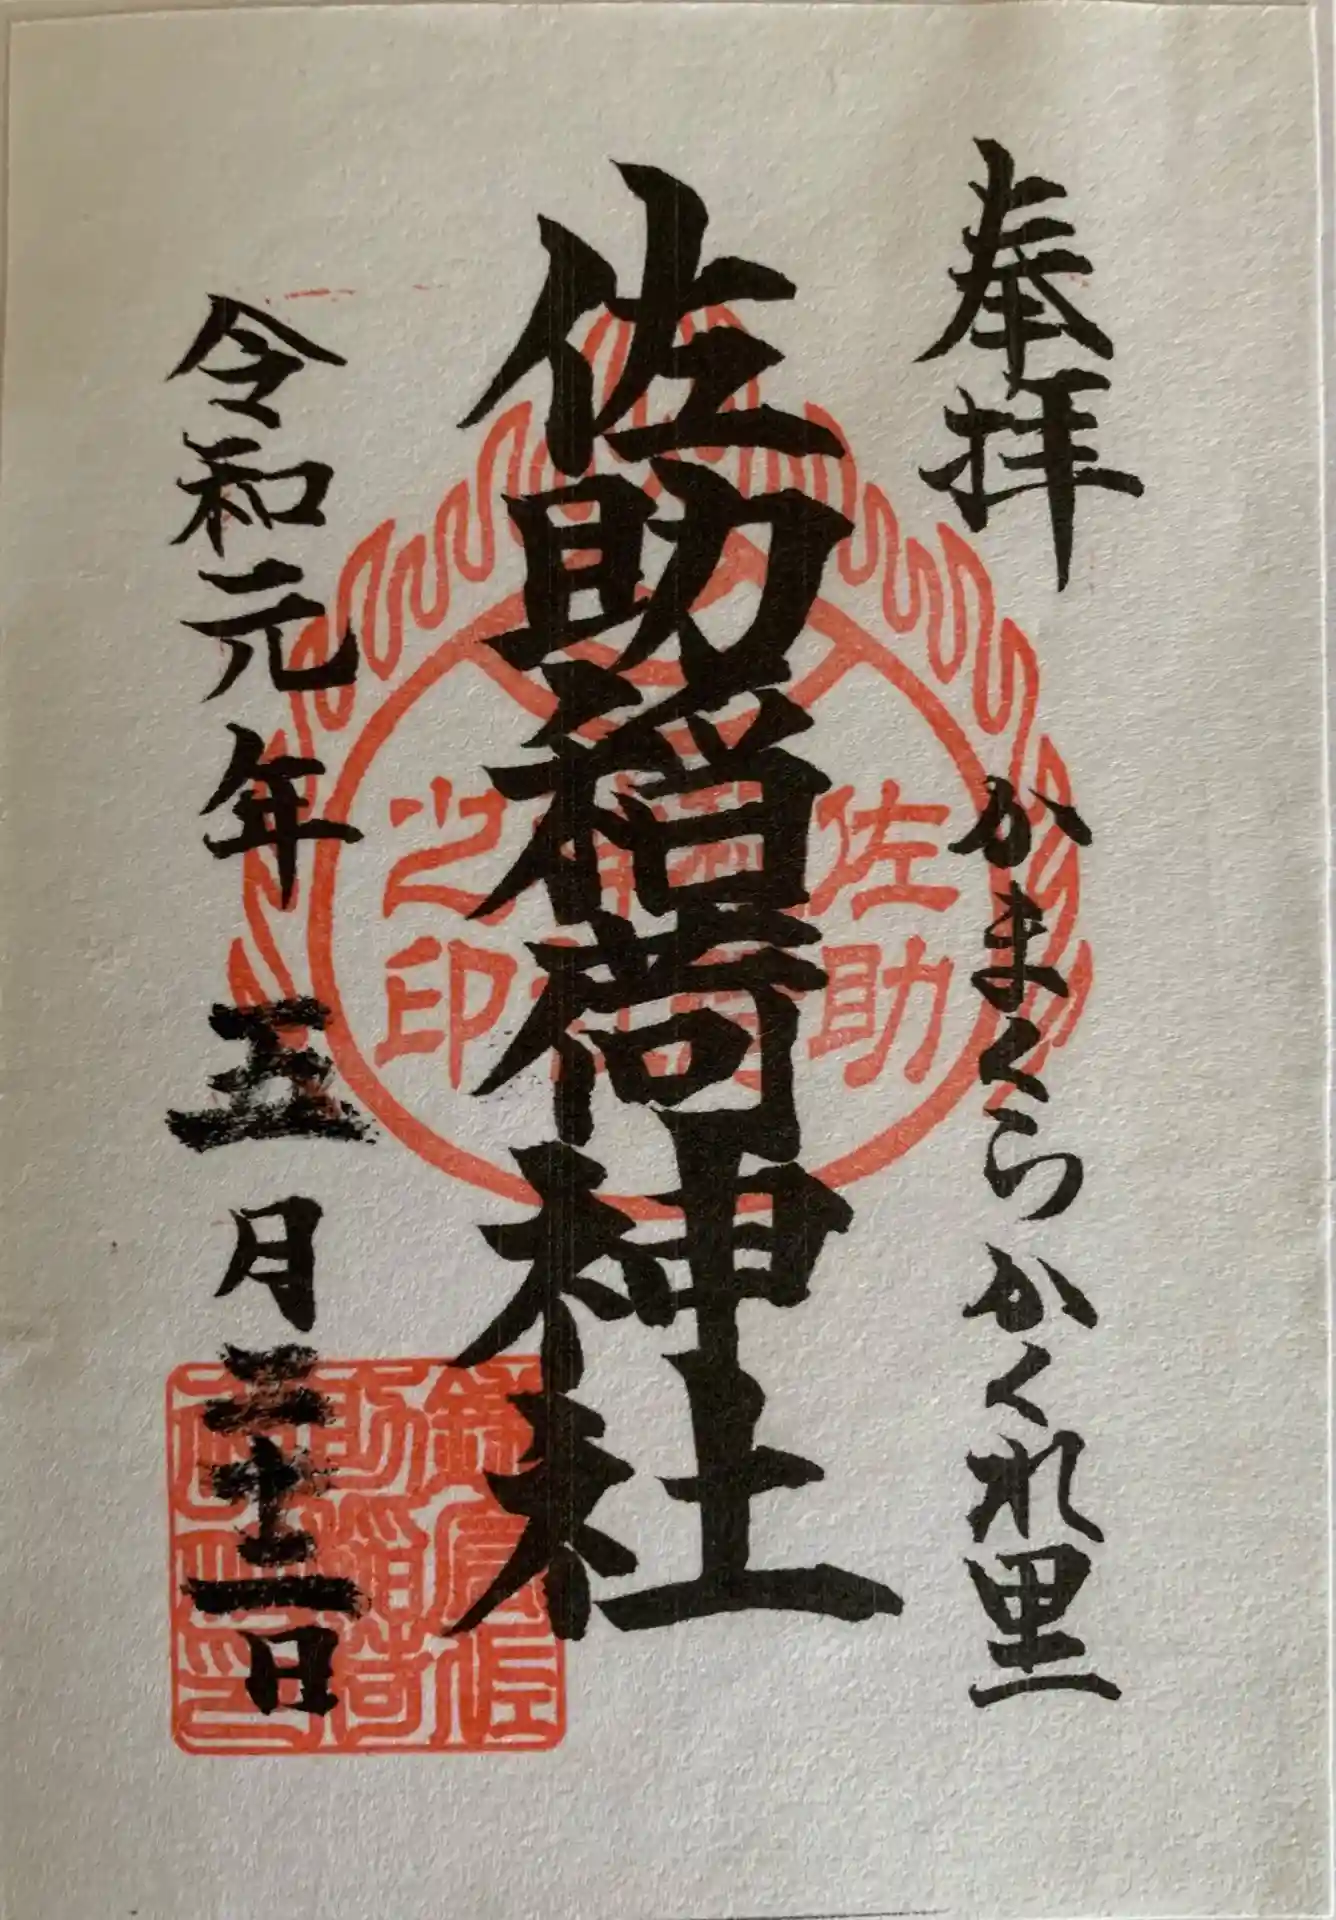 奉拝
かまくらかくれ里
佐助稲荷神社
令和元年
五月
日
佐助
之印
鎌倉佐
助稲荷